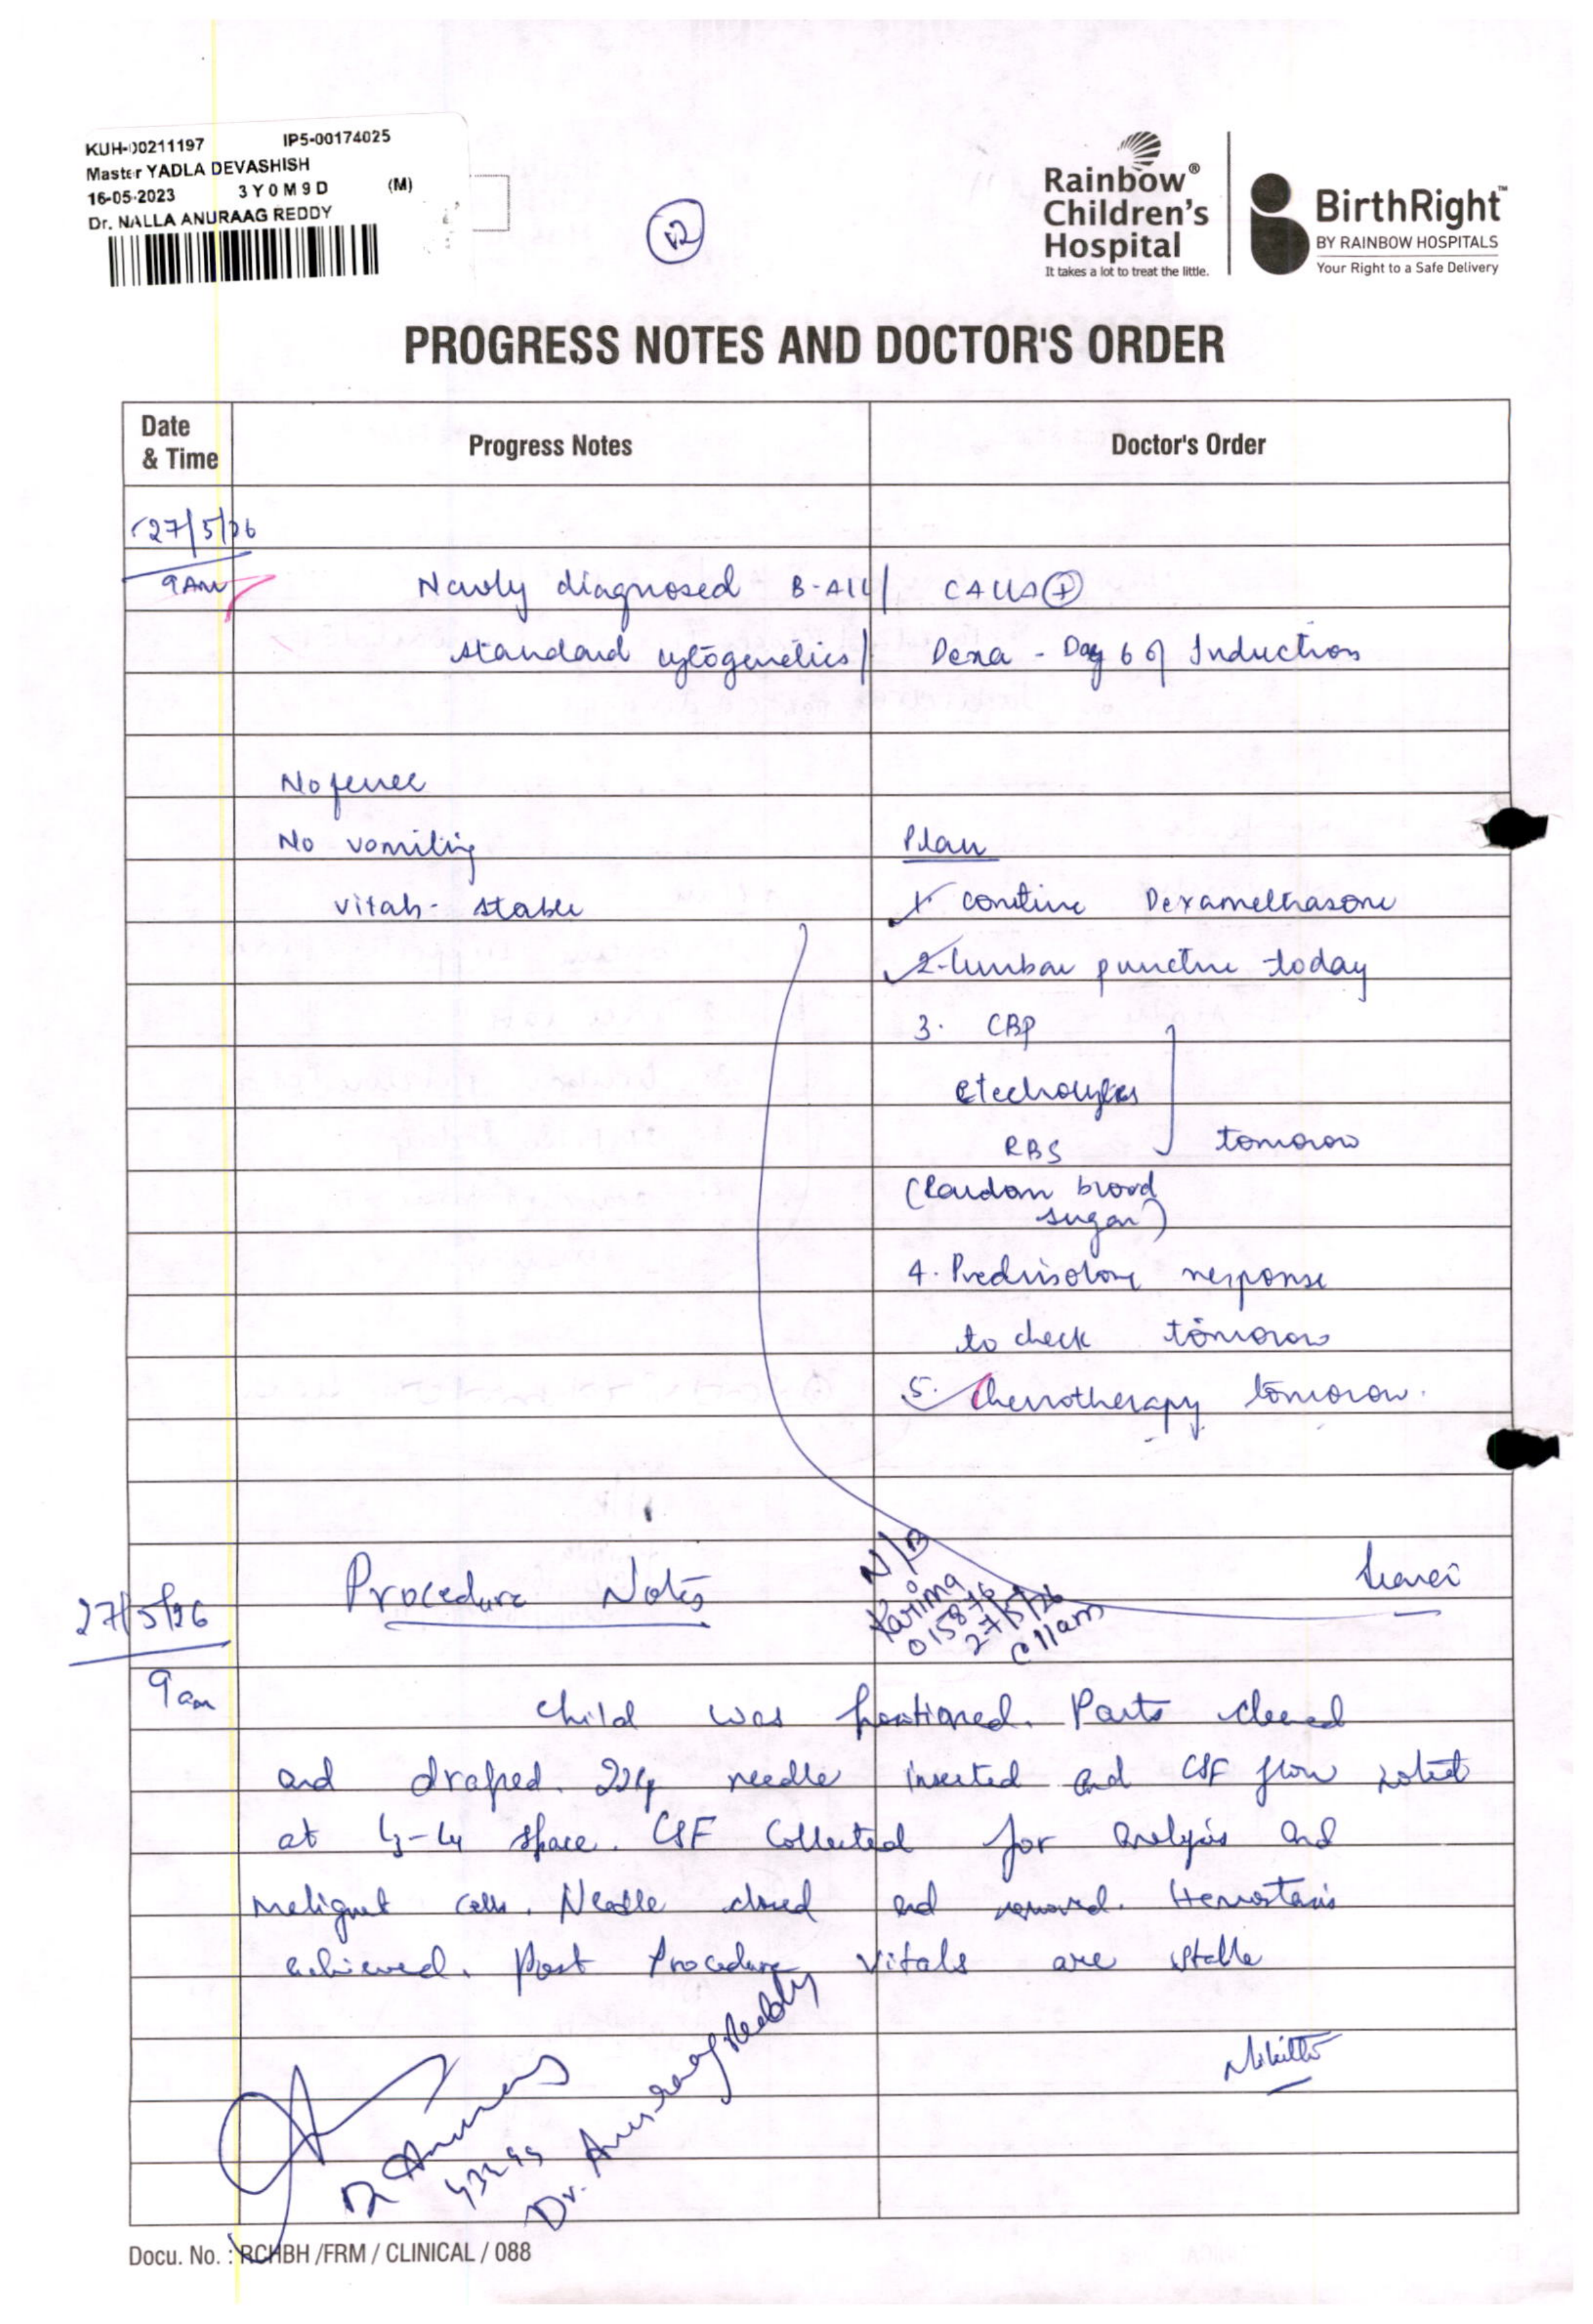 KUH-00211197 IP5-00174025
Master YADLA DEVASHISH
16-05-2023 3Y0M9D (M)
Dr. NALLA ANURAAG REDDY
Rainbow®
Children's
Hospital
It takes a lot to treat the little.
BirthRight™
BY RAINBOW HOSPITALS
Your Right to a Safe Delivery
PROGRESS NOTES AND DOCTOR'S ORDER
Date
& Time
Progress Notes
Doctor's Order
27/5/26
9AM
Newly diagnosed B-ALL/
standard cytogenetics/ Dexa - Day 6 of Induction
No fever
No vomiting
Plan
vitals - stable
1. continue Dexamethasone
2. lumbar puncture today
3. CBP
Electrolytes
RBS
tomorow
(Random blood
sugar)
4. Prednisolone response
to check tomorow
5. Chemotherapy tomorow.
27/5/26
Procedure Notes
N/B
Karima
015876
27/5/26
@ 11am
9am
Child was positioned. Parts cleaned
and draped. 22G needle inserted and CSF flow noted
at L3-L4 space. CSF Collected for analysis and
malignant cells. Needle closed and removed. Hemostasis
achieved. Post Procedure vitals are stable
Dr. Anuraag Reddy
Docu. No. : RCHBH /FRM / CLINICAL / 088